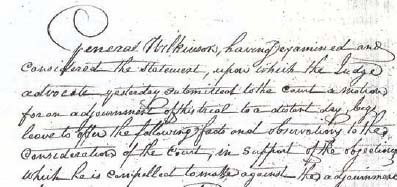 General Wilkinson, having examined and
considered the statement, upon which the Judge
advocate yesterday submitted to the court a motion
for an adjournment of his trial to a distant day, begs
leave to offer the following facts and observations to the
consideration of the Court, in support of the objections
which he is compelled to make against the adjournment